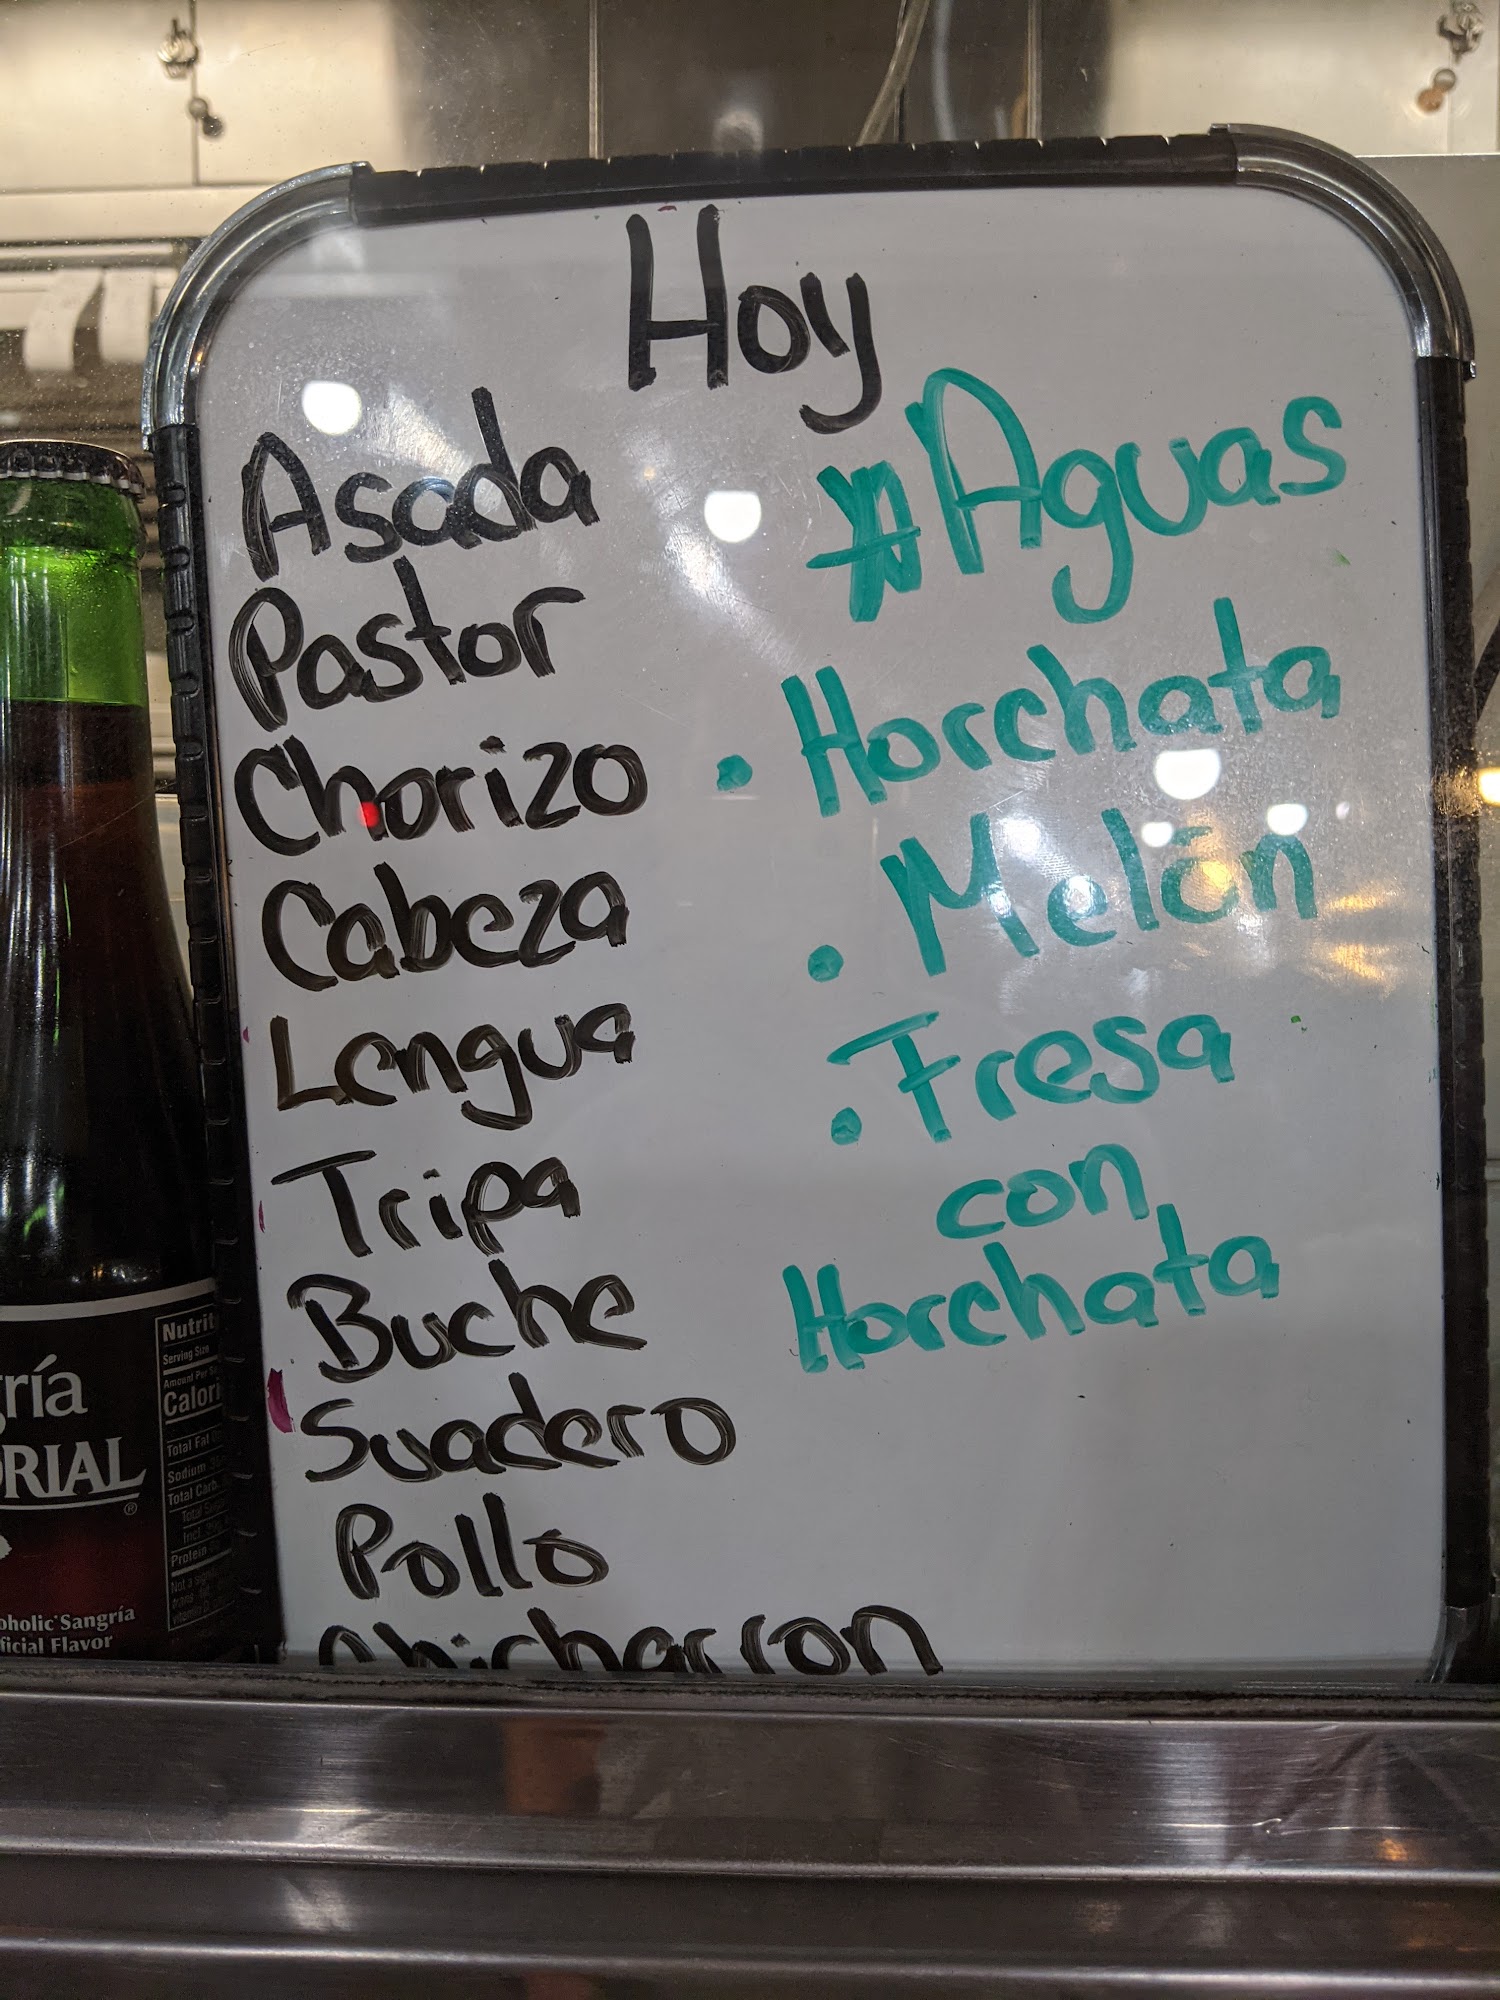 Hoy
Asada
Pastor
Chorizo
Cabeza
Lengua
Tripa
Buche
Suadero
Pollo
Chicharron
*Aguas
• Horchata
• Melón
• Fresa
con
Horchata
ría
ORIAL
®
oholic Sangría
ficial Flavor
Nutrit
Serving Size
Amount Per
Calori
Total Fat
Sodium
Total Carb.
Total
Incl.
Protein
Not a